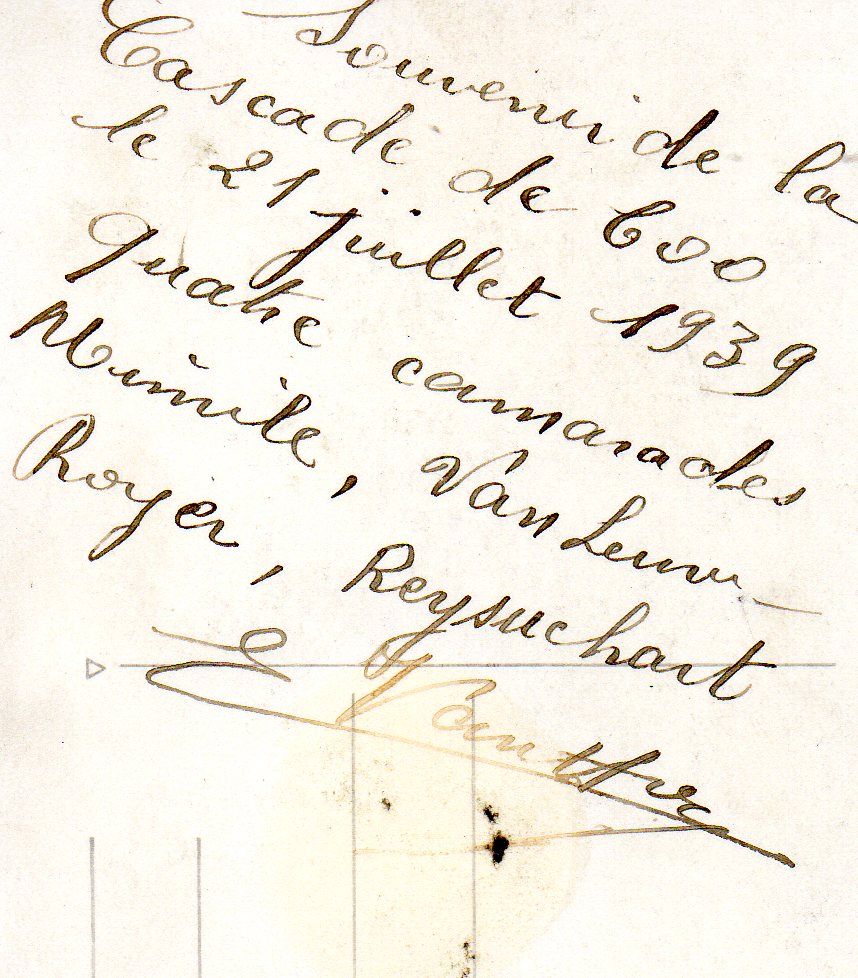 Souvenir de la
Cascade de Coo
le 21 juillet 1939
quatre camarades
Mimile, Van Leuw-
Royer, Reysuchart
E Vanthy